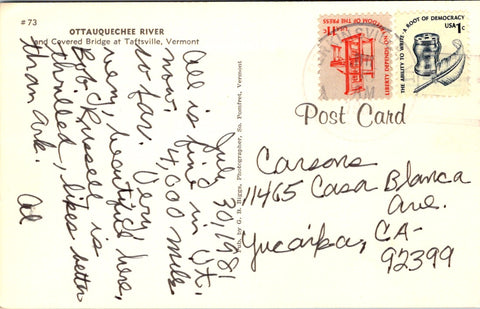 #73
OTTAUQUECHEE RIVER
and Covered Bridge at Taftsville, Vermont
July 30, 1981
All is fine in Vt.
now. 4,000 miles
so far. Very,
very, beautiful here,
Bob Russely is
thrilled, likes better
than Ark.
Al
Pub. by G. B. Biggs, Photographer, So. Pomfret, Vermont
11c
FREEDOM OF THE PRESS
LIBERTY DEPENDS ON
USA 1c
THE ABILITY TO WRITE · A ROOT OF DEMOCRACY
Post Card
Carsons
11465 Casa Blanca
Ave.
Yucaipa, CA-
92399